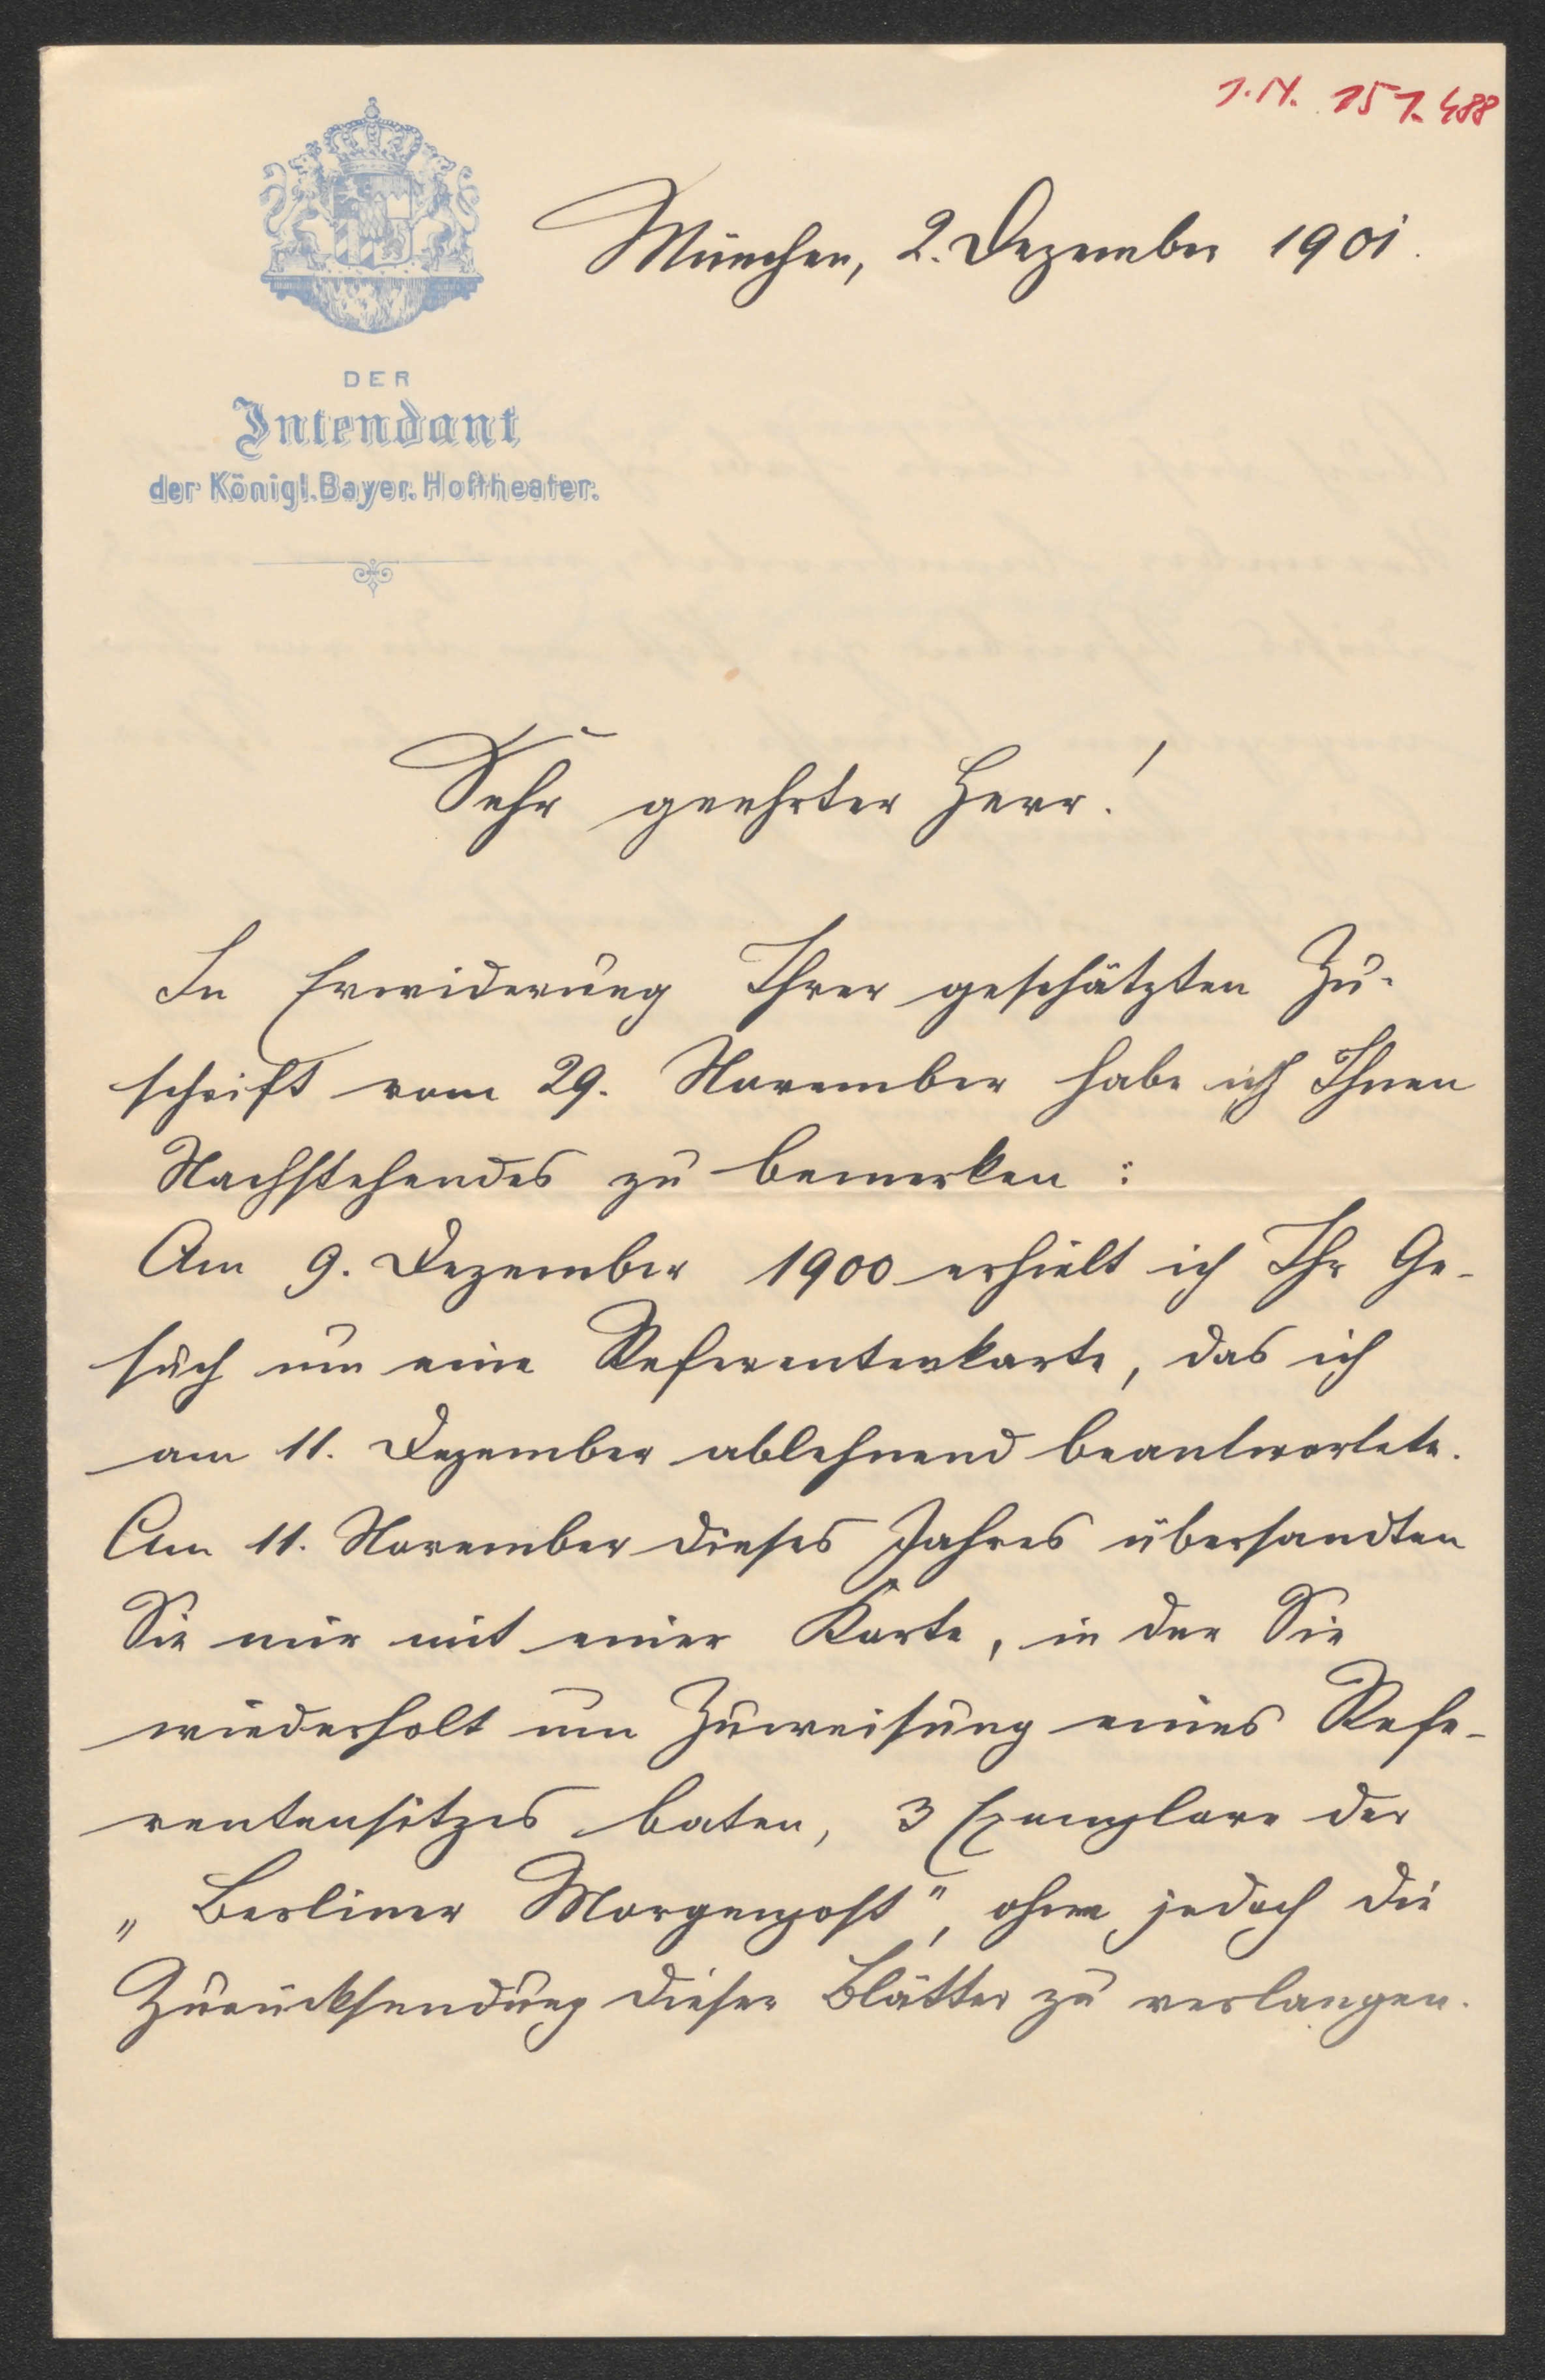 J.N. 151.488
München, 2. Dezember 1901.
DER
Intendant
der Königl. Bayer. Hoftheater.
Sehr geehrter Herr!
In Erwiderung Ihrer geschätzten Zu-
schrift vom 29. November habe ich Ihnen
Nachstehendes zu bemerken:
Am 9. Dezember 1900 erhielt ich Ihr Ge-
such um eine Referentenkarte, das ich
am 11. Dezember ablehnend beantwortete.
Am 11. November dieses Jahres übersandten
Sie mir mit einer Karte, in der Sie
wiederholt um Zuweisung eines Refe-
rentensitzes baten, 3 Exemplare der
„Berliner Morgenpost", ohne jedoch die
Zurücksendung dieser Blätter zu verlangen.